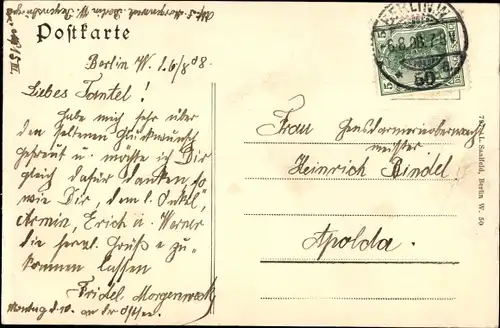 Postkarte
Berlin W. 1. 6/8 08.
Liebes Tantel!
Habe mich sehr über
den seltenen Glückwunsch
gefreut u. möchte ich Dir
gleich dafür danken so
wie Dir, dem l. Onkel,
Armin, Erich u. Werner
die herzl. Grüße zu-
kommen lassen
Fridel Morgenroth
Montag d. 10. an der Ostsee.
BERLIN W.
6.8.08.
50
Frau Gendarmerieoberwacht
meister
Heinrich Rindel
Apolda.
L. Saalfeld, Berlin W. 50